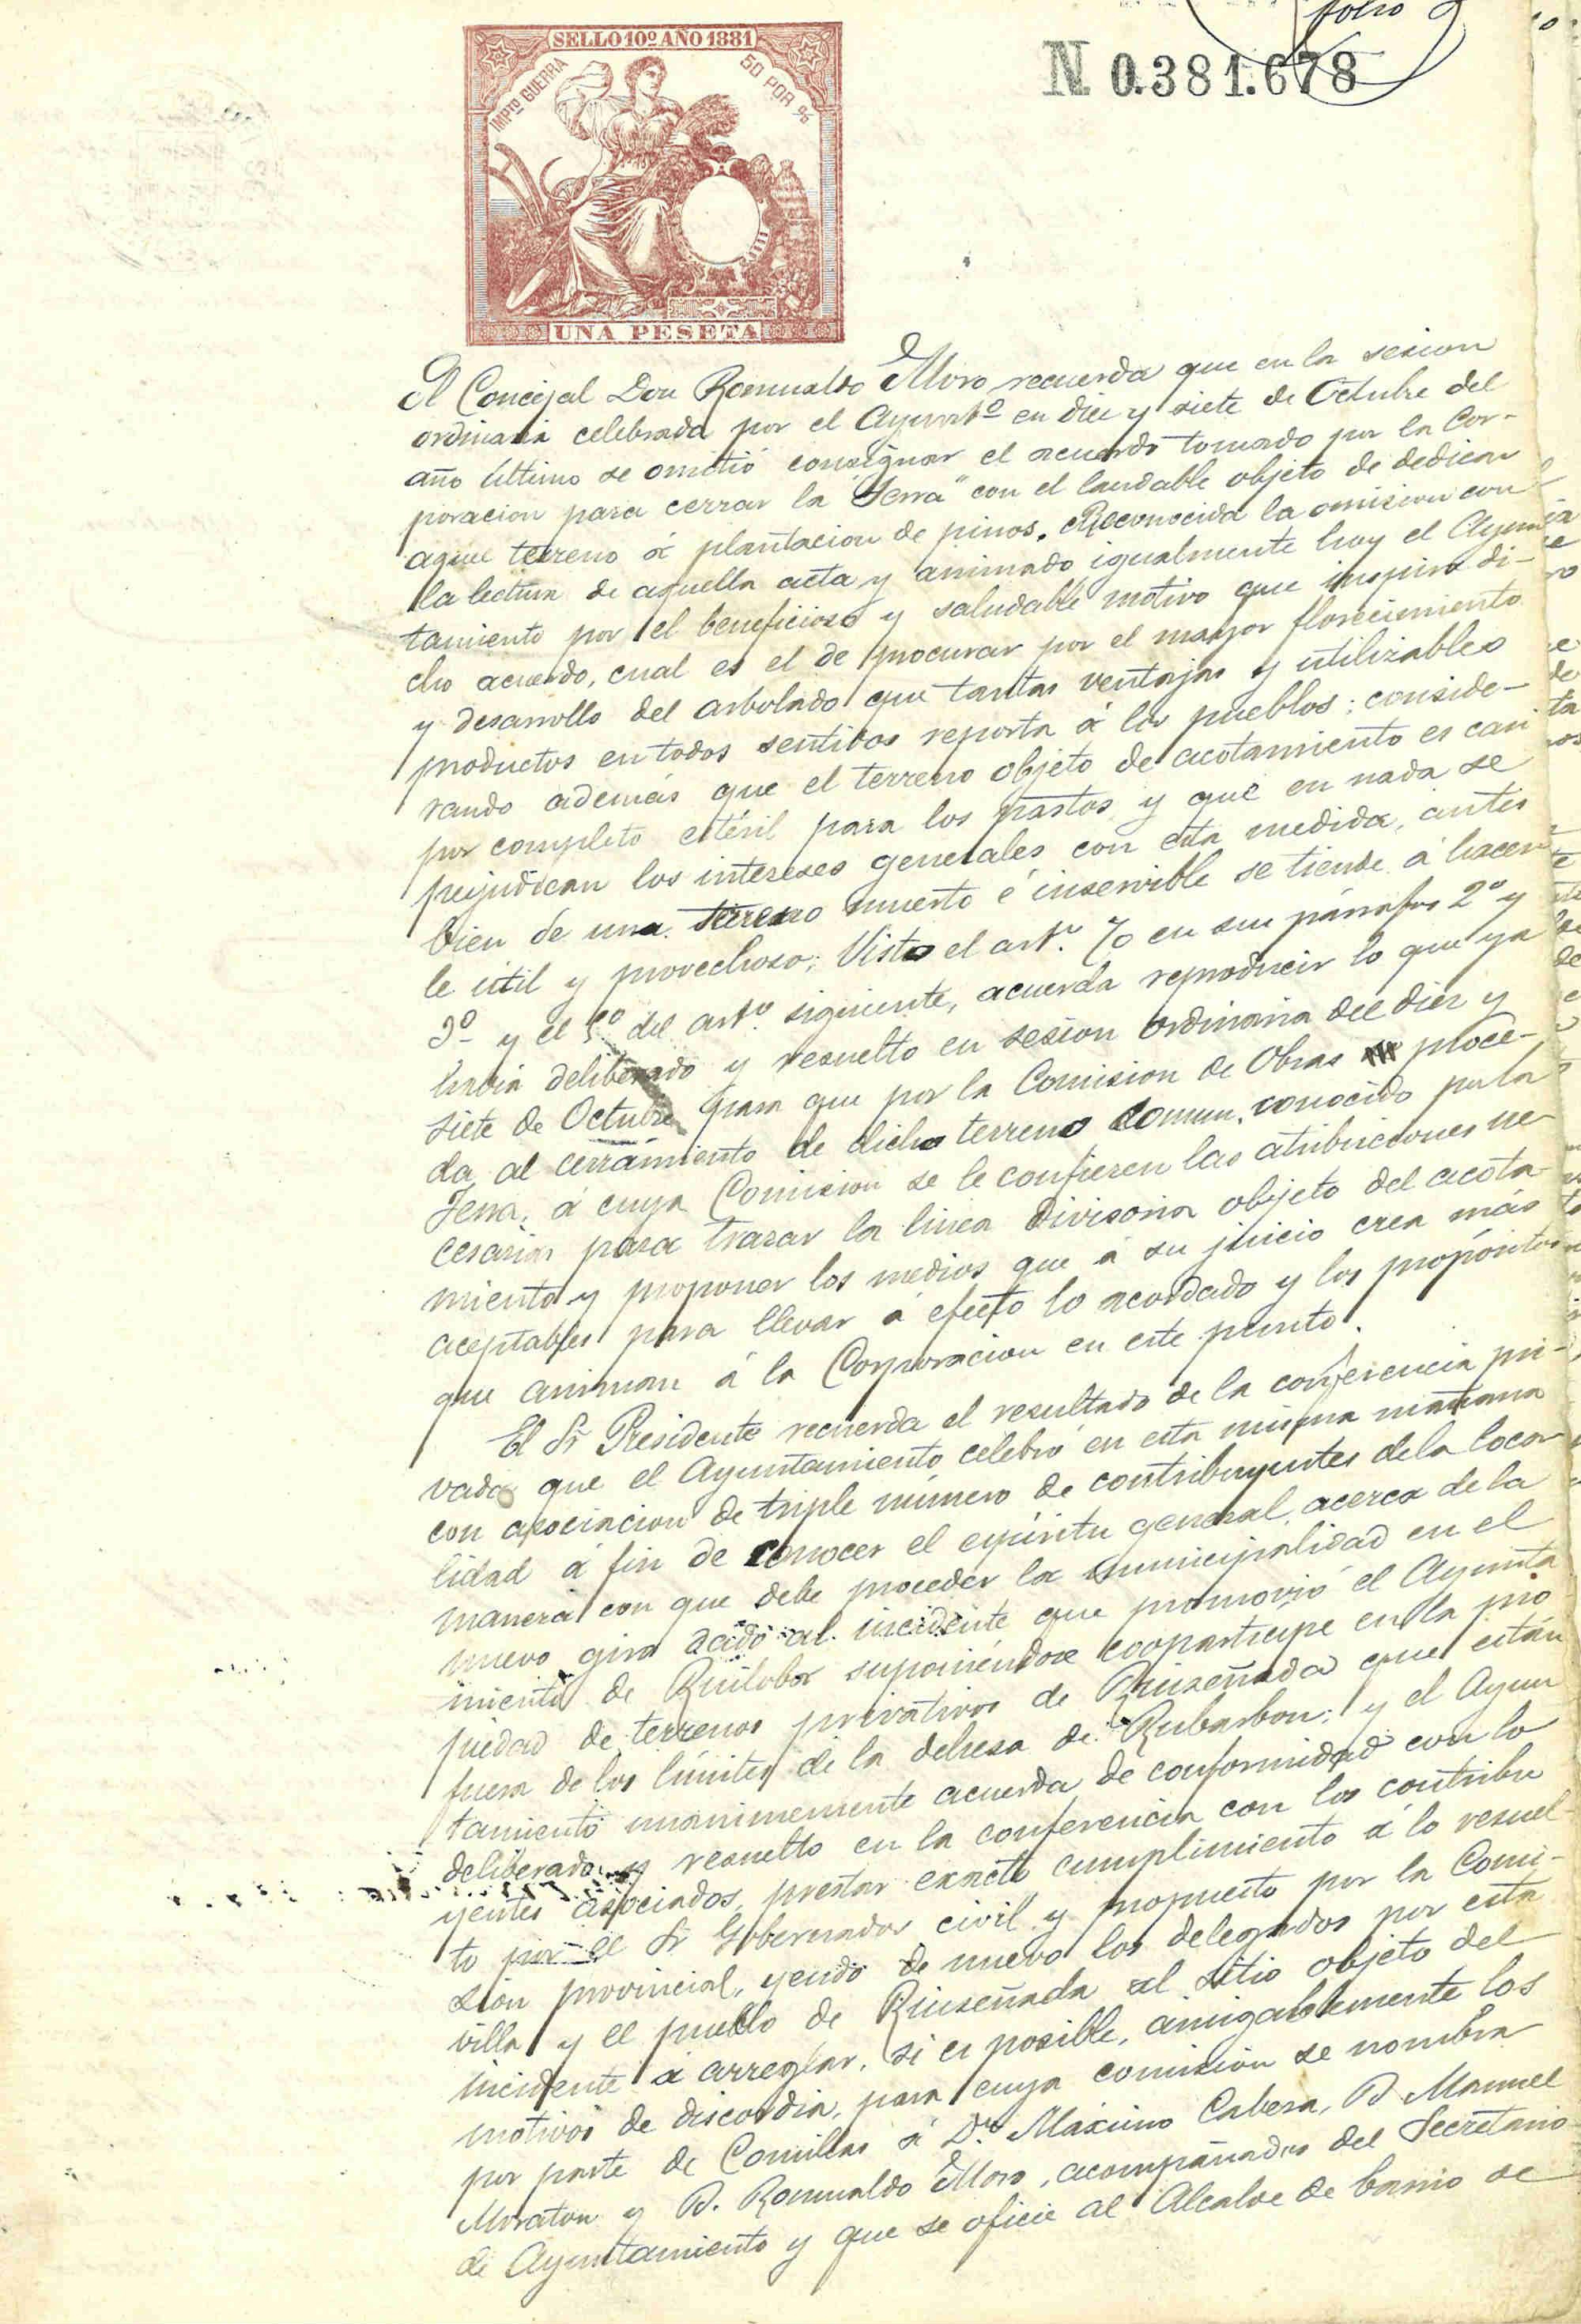 folio 9
N. 0.381.678
SELLO 10º AÑO 1881
IMPTO GUERRA
50 POR %
UNA PESETA
El Concejal Don Romualdo Moro recuerda que en la sesion
ordinaria celebrada por el Ayuntº en diez y siete de Octubre del
año último se omitió consignar el acuerdo tomado por la Cor-
poracion para cerrar la "Jerra" con el laudable objeto de dedicar
aquel terreno á plantacion de pinos. Reconocida la omision con
la lectura de aquella acta y animado igualmente hoy el Ayun
tamiento por el beneficioso y saludable motivo que inspira di-
cho acuerdo, cual es el de procurar por el mayor florecimiento
y desarrollo del arbolado que tantas ventajas y utilizables
productos en todos sentidos reporta á los pueblos; conside-
rando además que el terreno objeto de acotamiento es casi
por completo estéril para los pastos y que en nada se
perjudican los intereses generales con esta medida, antes
bien de una terreno muerto é inservible se tiende á hacer-
le útil y provechoso; Visto el artº. 70 en sus párrafos 2º y
3º y el 5º del artº siguiente, acuerda reproducir lo que ya
habia deliberado y resuelto en sesion ordinaria del diez y
siete de Octubre para que por la Comision de Obras proce-
da al cerramiento de dicho terreno comun, conocido por la
Jerra, á cuya Comision se le confieren las atribuciones ne
cesarias para trazar la linea divisoria objeto del acota-
miento y proponer los medios que á su juicio crea más
aceptables para llevar á efecto lo acordado y los propósitos
que animan á la Corporacion en este punto.
El Sr Presidente recuerda el resultado de la conferencia pri-
vada que el Ayuntamiento celebró en esta misma mañana
con asociacion de triple número de contribuyentes de la loca-
lidad á fin de conocer el espíritu general acerca de la
manera con que debe proceder la municipalidad en el
nuevo giro dado al incidente que promovió el Ayunta
miento de Ruiloba suponiéndose copartícipe en la pro
piedad de terrenos privativos de Ruiseñada que están
fuera de los límites de la dehesa de Rubarbon; y el Ayun
tamiento unánimemente acuerda de conformidad con lo
deliberado y resuelto en la conferencia con los contribu
yentes asociados, prestar exacto cumplimiento á lo resuel-
to por el Sr Gobernador civil y propuesto por la Comi-
sion provincial, yendo de nuevo los delegados por esta
villa y el pueblo de Ruiseñada al sitio objeto del
incidente á arreglar, si es posible, amigablemente los
motivos de discordia, para cuya comision se nombra
por parte de Comillas á Dn Máximo Cabeza, D. Manuel
Moraton y D. Romualdo Moro, acompañados del Secretario
de Ayuntamiento y que se oficie al Alcalde de barrio de